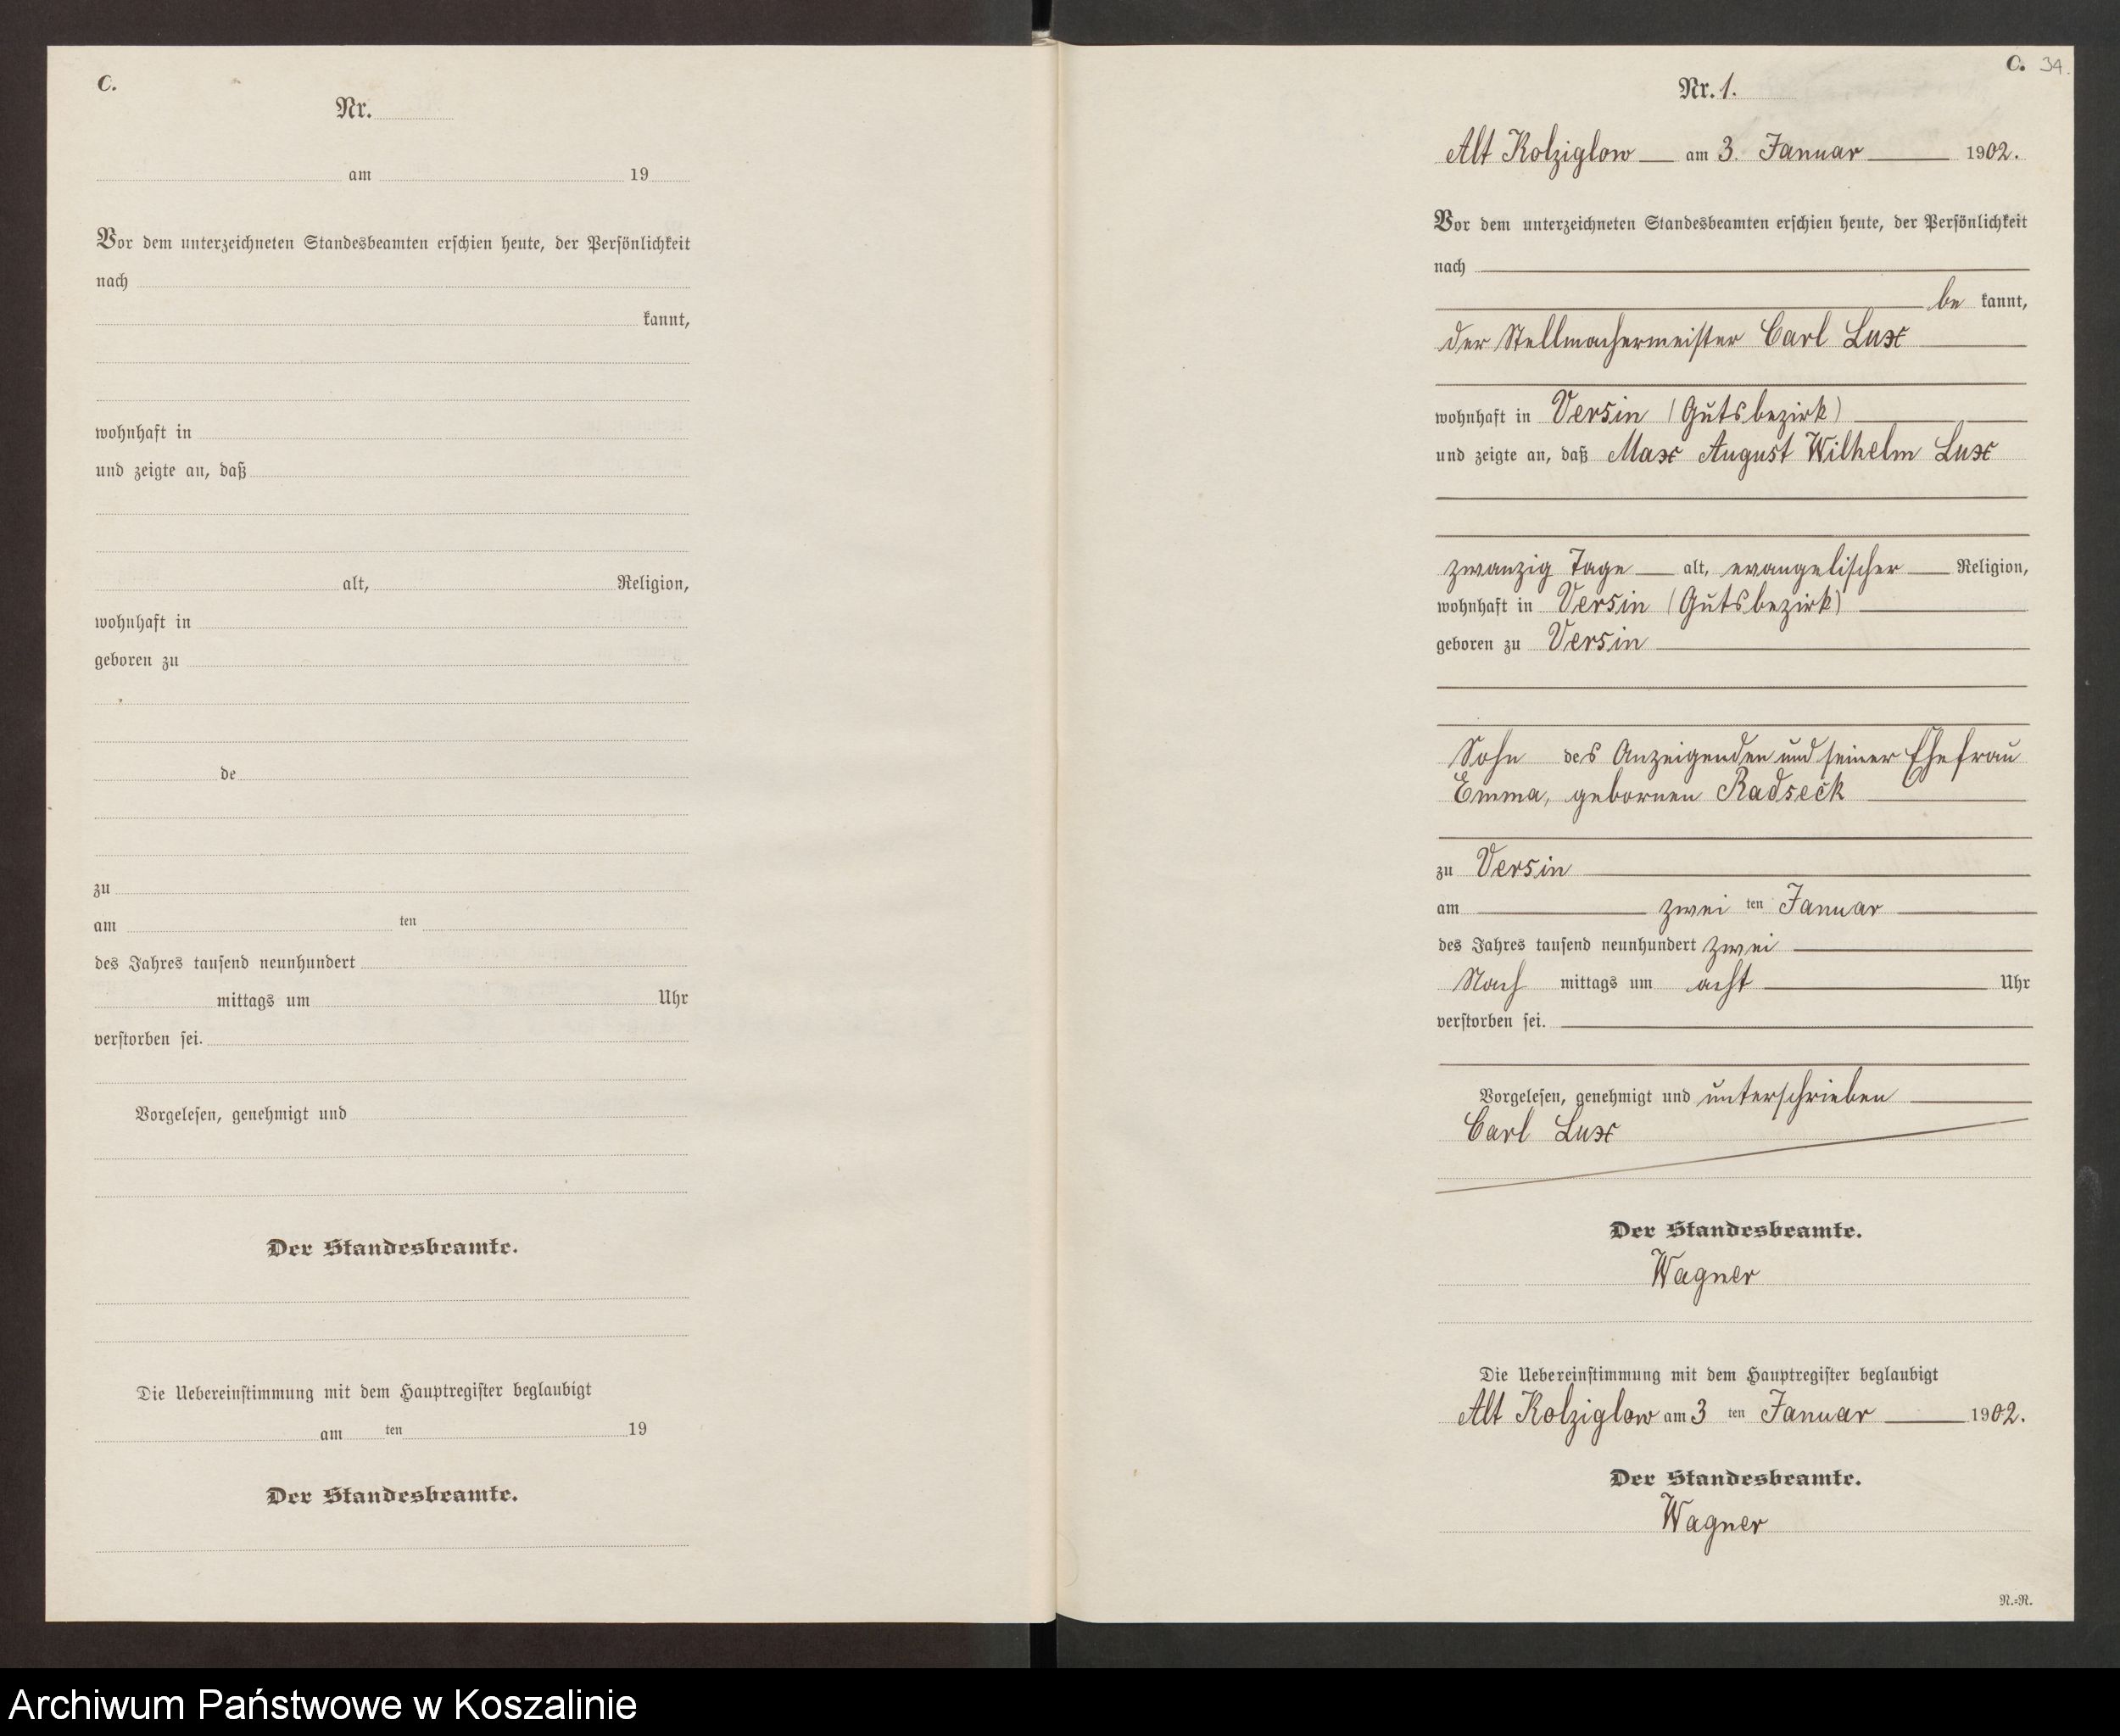 C.
Nr.
am 19
Vor dem unterzeichneten Standesbeamten erschien heute, der Persönlichkeit
nach
kannt,
wohnhaft in
und zeigte an, daß
alt, Religion,
wohnhaft in
geboren zu
de
zu
am ten
des Jahres tausend neunhundert
mittags um Uhr
verstorben sei.
Vorgelesen, genehmigt und
Der Standesbeamte.
Die Uebereinstimmung mit dem Hauptregister beglaubigt
am ten 19
Der Standesbeamte.
C. 34.
Nr. 1.
Alt Kolziglow am 3. Januar 1902.
Vor dem unterzeichneten Standesbeamten erschien heute, der Persönlichkeit
nach
be kannt,
der Stellmachermeister Carl Lux
wohnhaft in Versin (Gutsbezirk)
und zeigte an, daß Max August Wilhelm Lux
zwanzig Tage alt, evangelischer Religion,
wohnhaft in Versin (Gutsbezirk)
geboren zu Versin
Sohn des Anzeigenden und seiner Ehefrau
Emma, gebornen Radseck
zu Versin
am zwei ten Januar
des Jahres tausend neunhundert zwei
Nach mittags um acht Uhr
verstorben sei.
Vorgelesen, genehmigt und unterschrieben
Carl Lux
Der Standesbeamte.
Wagner
Die Uebereinstimmung mit dem Hauptregister beglaubigt
Alt Kolziglow am 3 ten Januar 1902.
Der Standesbeamte.
Wagner
N.=R.
Archiwum Państwowe w Koszalinie